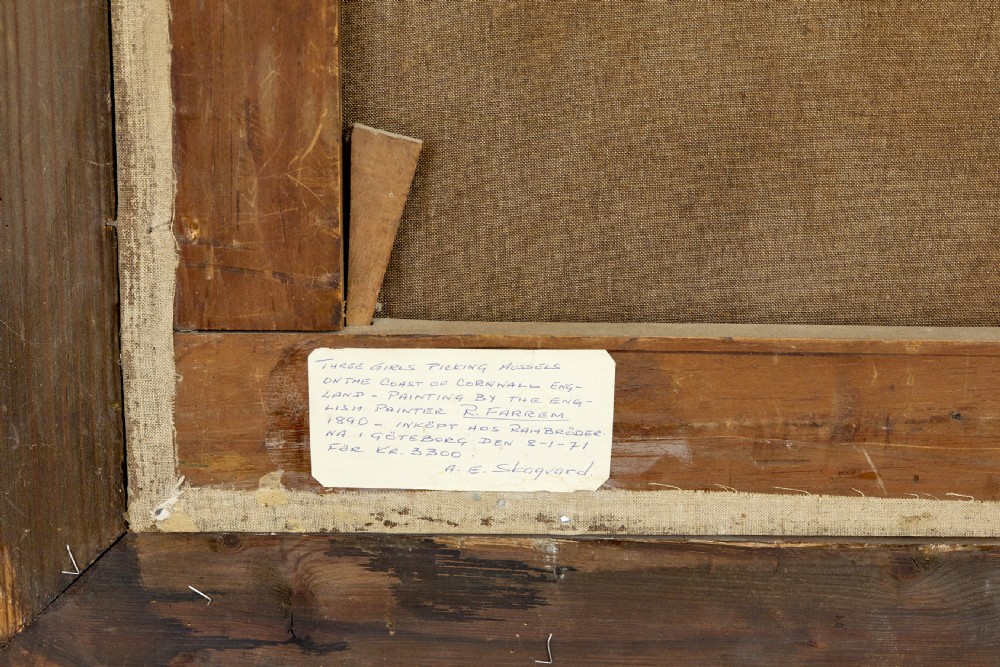 THREE GIRLS PICKING MUSSELS
ON THE COAST OF CORNWALL ENG-
LAND - PAINTING BY THE ENG-
LISH PAINTER R. FARREM
1890 - INKÖPT HOS RAMBRÖDER-
NA I GÖTEBORG DEN 8-1-71
FÖR KR. 3300.
A. E. Skogvard